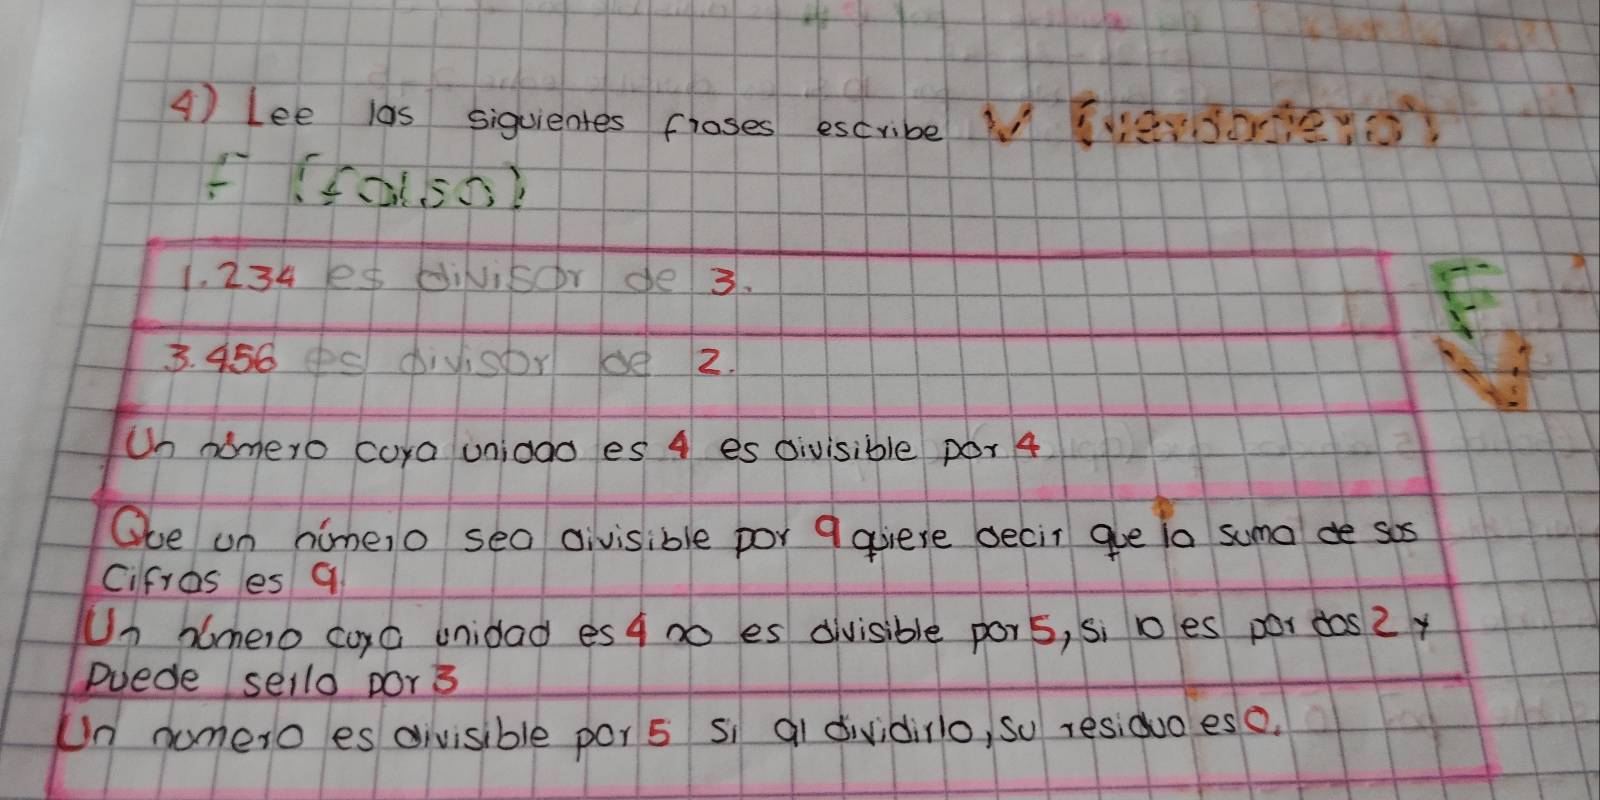 4) Lee las siguientes frases escribe V (verdadero)
F (falso)
1.234 es divisor de 3. F
3.456 es divisor de 2. V
Un número cuya unidad es 4 es divisible por 4
Que un número sea divisible por 9 quiere decir que la suma de sus
cifras es 9
Un número cuya unidad es 4 no es divisible por 5, si lo es por dos 2 y
puede serlo por 3
Un número es divisible por 5 si al dividirlo, su residuo es 0.